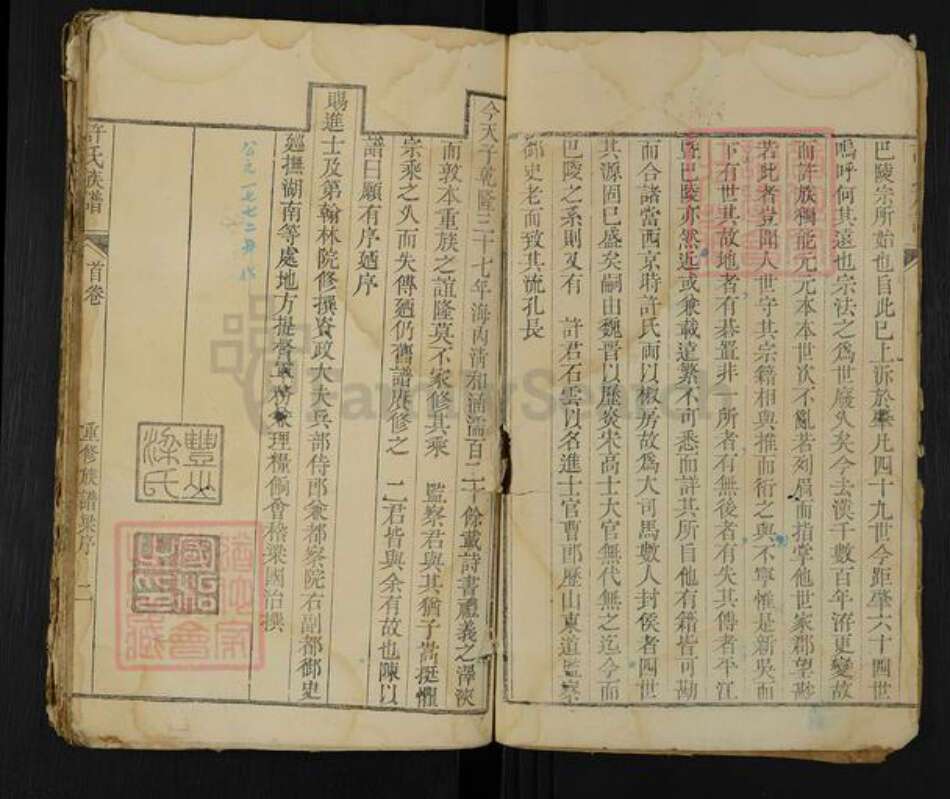 巴陵宗所始也自此已上泝於肇凡四十九世今距肇六十四世
嗚呼何其遠也宗法之為世廢久矣今去漢千數百年洊更變故
而許族獨能元元本本世次不亂若列眉而指掌他世家郡望尠
若此者豈聞人世守其宗籍相與推而衍之與不寧惟是新吳而
下有世其故地者有棊置非一所者有無後者有失其傳者平江
暨巴陵亦然近或兼載遠繁不可悉而詳其所自他有籍皆可勘
而合諸當西京時許氏兩以椒房故為大司馬數人封侯者四世
其源固已盛矣嗣由魏晉以歷炎宋高士大官無代無之迄今而
巴陵之系則又有 許君石雲以名進士官曹郎歷山東道監察
御史老而致其旒孔長
今天子乾隆三十七年海內清和涵濡百二十餘載詩書禮義之澤浹
而敦本重族之誼隆莫不家修其乘 監察君與其猶子嵩挺懼
宗乘之久而失傳廼仍舊譜賡修之 二君皆與余有故也陳以
譜曰願有序廼序
賜進士及第翰林院修撰資政大夫兵部侍郎兼都察院右副都御史
廵撫湖南等處地方提督軍務兼理糧餉會稽梁國治撰
公元一七七二年
豐山
梁氏
許氏族譜
首卷
重修族譜梁序
二
FamilySearch